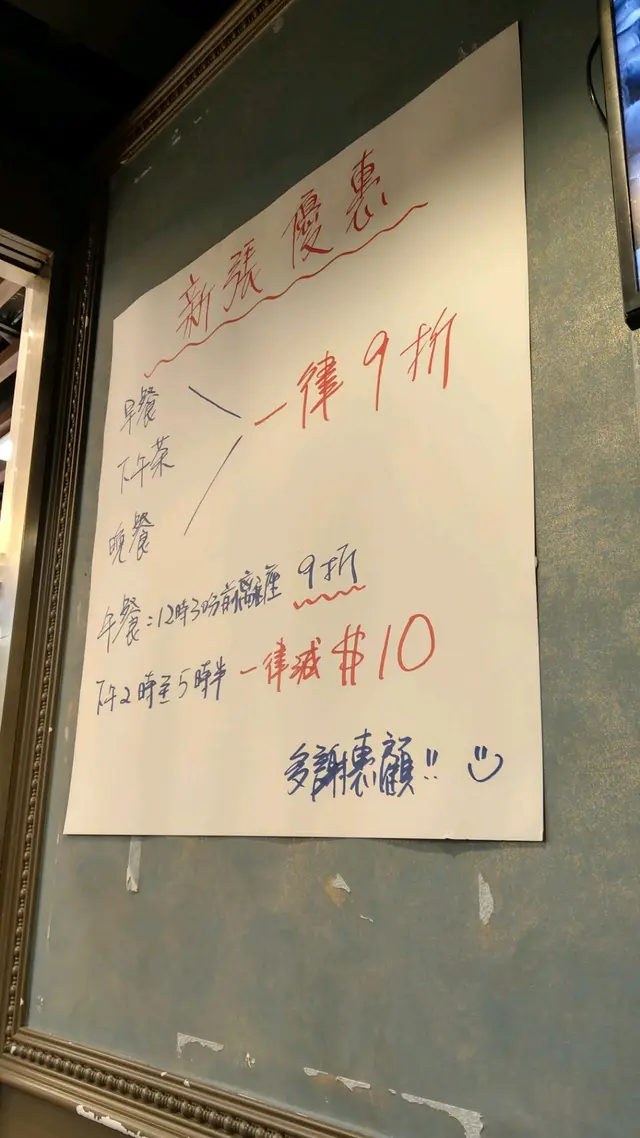 新張優惠
早餐
下午茶
晚餐
一律9折
午餐:12時30分前離座 9折
下午2時至5時半 一律減$10
多謝惠顧!!